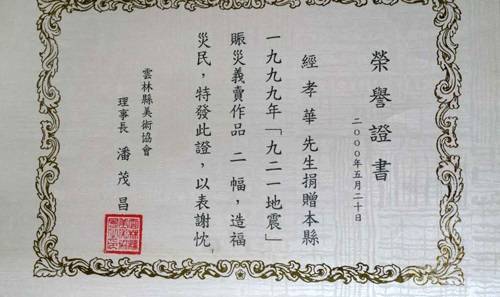 榮譽證書
二〇〇〇年五月二十日
經孝華先生捐贈本縣
一九九九年「九二一地震」
賑災義賣作品二幅，造福
災民，特發此證，以表謝忱
雲林縣美術協會
理事長 潘茂昌